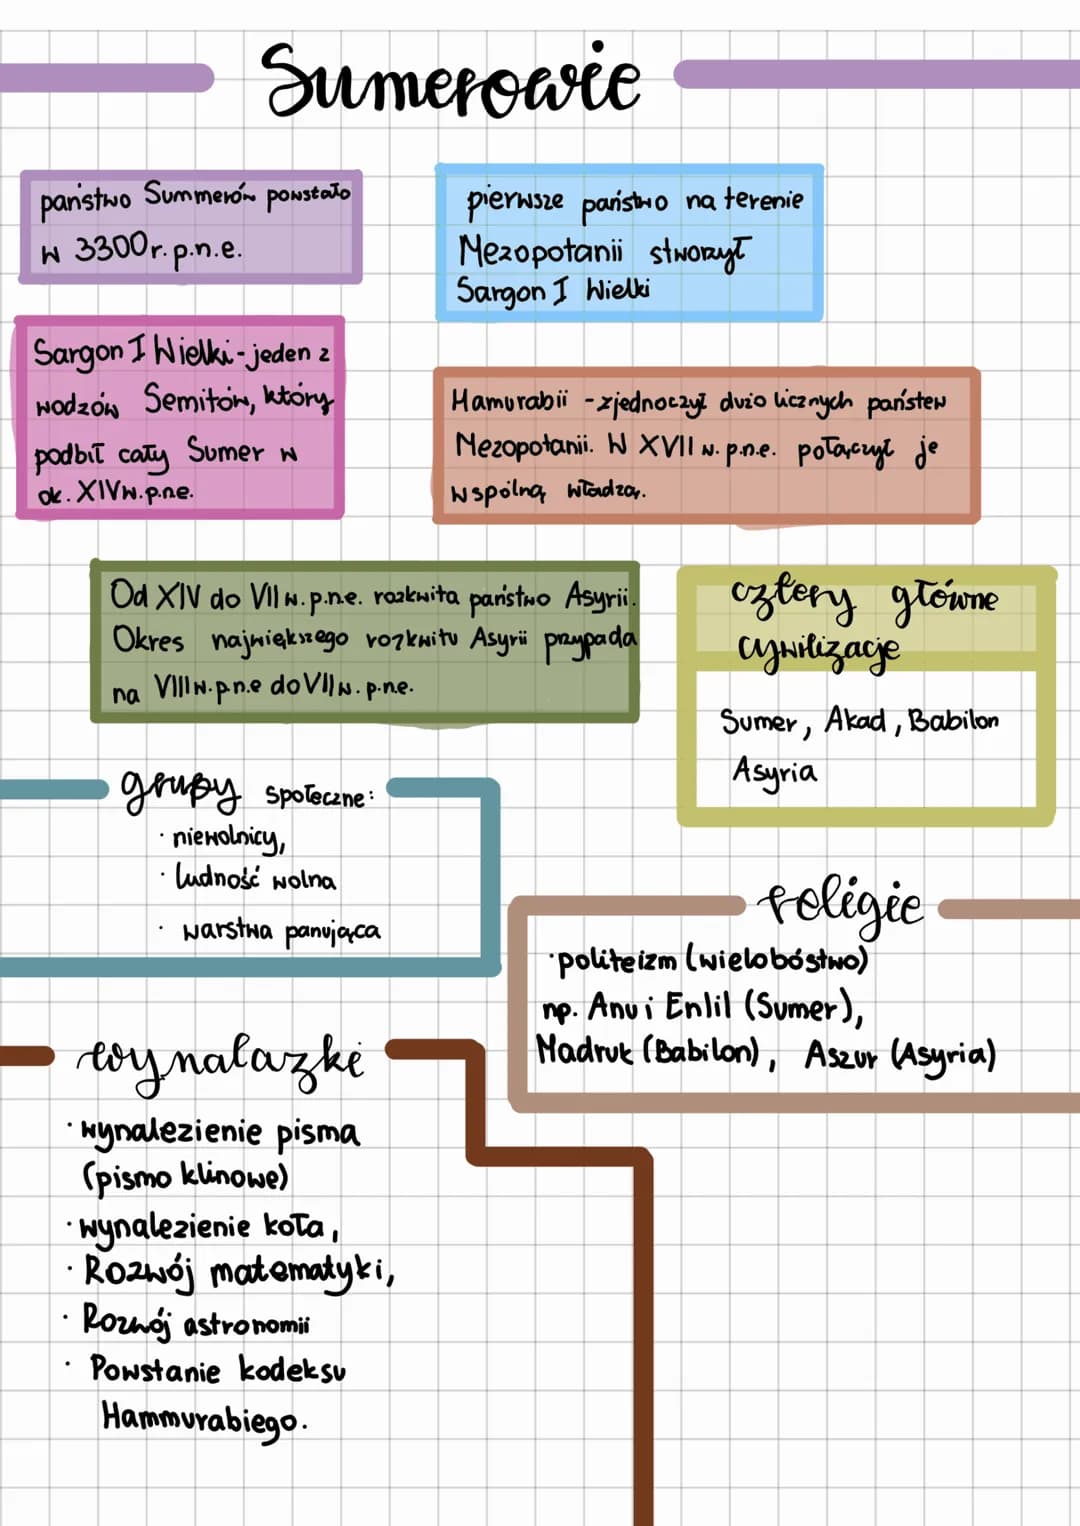 Sumerowie
państwo Summerów powstało
w 3300r. p.n.e.
pierwsze państwo na terenie
Mezopotanii stworzył
Sargon I Wielki
Sargon I Wielki - jeden z
wodzów Semitów, który
podbił cały Sumer w
ok. XIV w. p.n.e.
Hamurabii - zjednoczył dużo licznych państew
Mezopotanii. W XVII w. p.n.e. połączył je
wspólną władzą.
Od XIV do VII w. p.n.e. rozkwita państwo Asyrii.
Okres największego rozkwitu Asyrii przypada
na VIII w. p.n.e do VII w. p.n.e.
cztery główne
cywilizacje
Sumer, Akad, Babilon
Asyria
grupy społeczne:
· niewolnicy,
· ludność wolna
· warstwa panująca
religie
· politeizm (wielobóstwo)
np. Anu i Enlil (Sumer),
Madruk (Babilon), Aszur (Asyria)
wynalazki
· wynalezienie pisma
(pismo klinowe)
· wynalezienie koła,
· Rozwój matematyki,
· Rozwój astronomii
· Powstanie kodeksu
Hammurabiego.